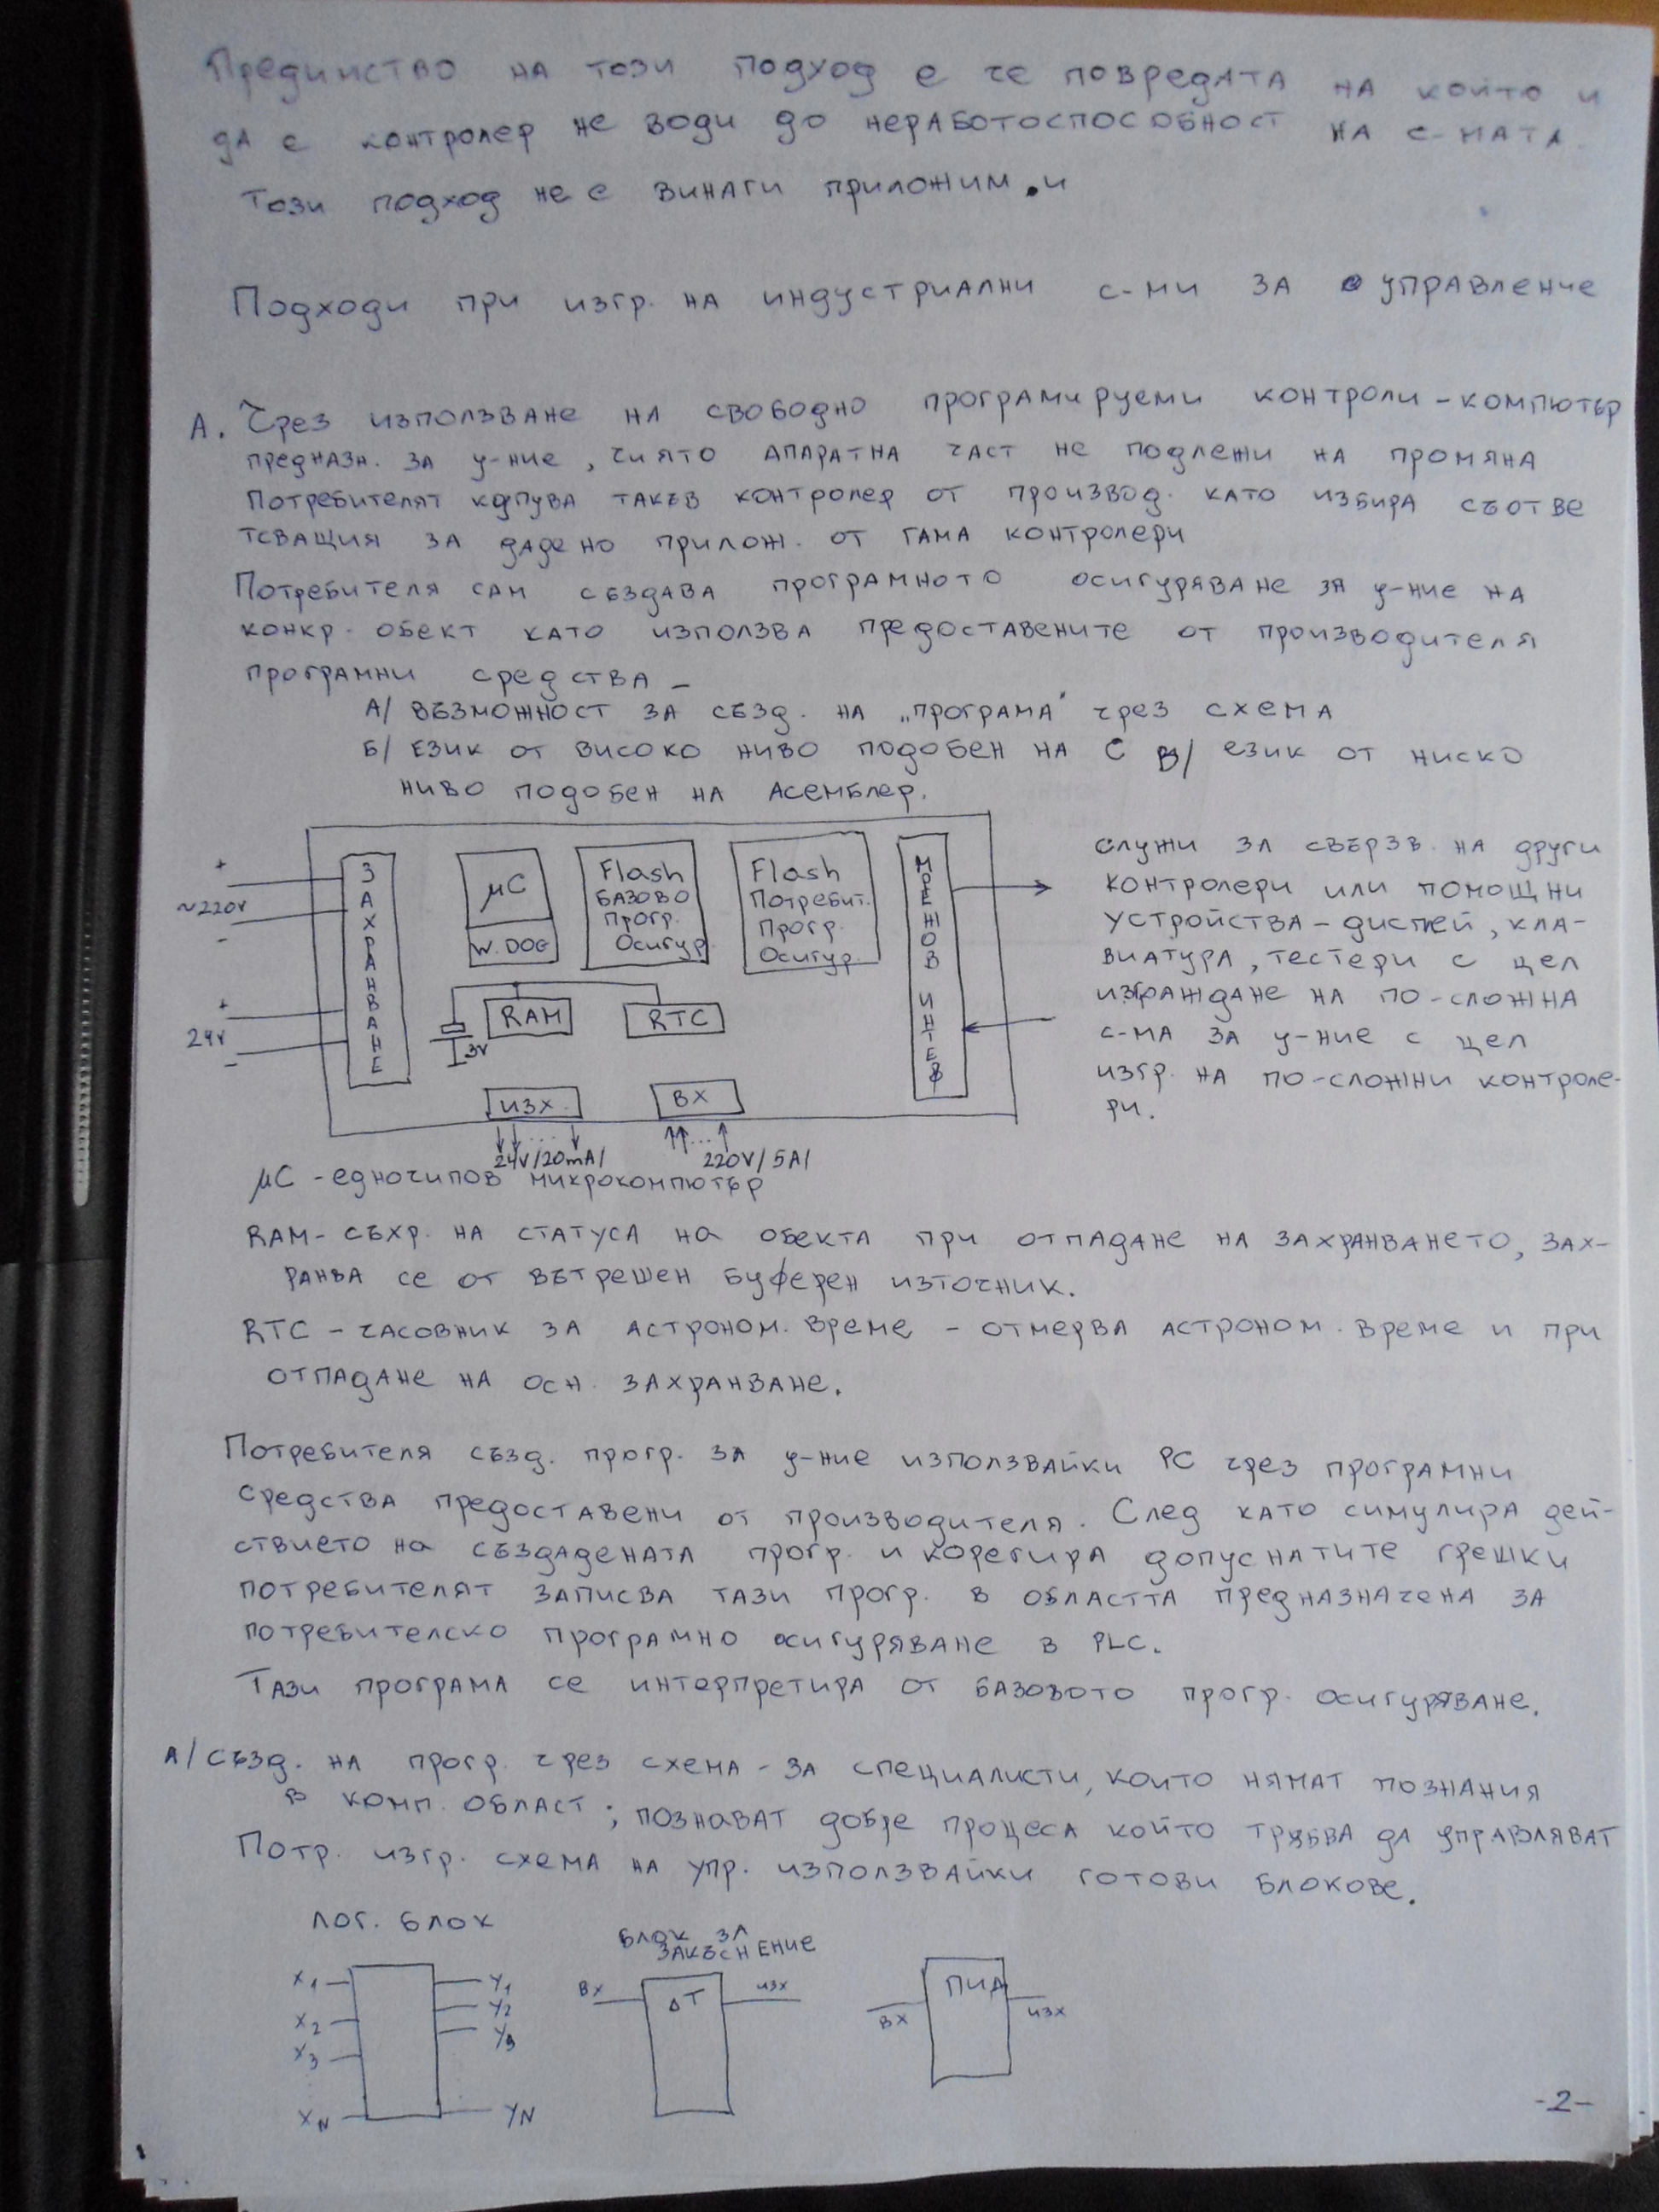 Предимство на този подход е че повредата на който и
да е контролер не води до неработоспособност на с-мата.
Този подход не е винаги приложим.и
Подходи при изгр. на индустриални с-ми за управление
А. Чрез използване на свободно програмируеми контроли - компютър
предназн. за у-ние, чиято апаратна част не подлежи на промяна
Потребителят купува такъв контролер от производ. като избира съотве
тсващия за дадено прилож. от гама контролери
Потребителя сам създава програмното осигуряване за у-ние на
конкр. обект като използва предоставените от производителя
програмни средства -
А/ възможност за създ. на „програма" чрез схема
Б/ език от високо ниво подобен на C В/ език от ниско
ниво подобен на Асемблер.
+
~220V
-
+
24V
-
ЗАХРАНВАНЕ
μC
W.DOG
Flash
базово
прогр.
Осигур.
Flash
Потребит.
Прогр.
Осигур.
RAM
RTC
3V
изх.
ВХ
24V/20mA/
220V/5A/
служи за свързв. на други
контролери или помощни
устройства - дисплей, кла-
виатура, тестери с цел
изграждане на по-сложна
с-ма за у-ние с цел
изгр. на по-сложни контроле-
ри.
μC - едночипов микрокомпютър
RAM - съхр. на статуса на обекта при отпадане на захранването, зах-
ранва се от вътрешен буферен източник.
RTC - часовник за астроном. време - отмерва астроном. време и при
отпадане на осн. захранване.
Потребителя създ. прогр. за у-ние използвайки PC чрез програмни
средства предоставени от производителя. След като симулира дей-
ствието на създадената прогр. и корегира допуснатите грешки
потребителят записва тази прогр. в областта предназначена за
потребителско програмно осигуряване в PLC.
Тази програма се интерпретира от базовото прогр. осигуряване.
А/ създ. на прогр. чрез схема - за специалисти, които нямат познания
в комп. област; познават добре процеса който трябва да управляват
Потр. изгр. схема на упр. използвайки готови блокове.
лог. блок
X1
X2
X3
XN
Y1
Y2
Y3
YN
блок за
закъснение
ВХ
ΔT
изх
ВХ
ПИД
изх
-2-